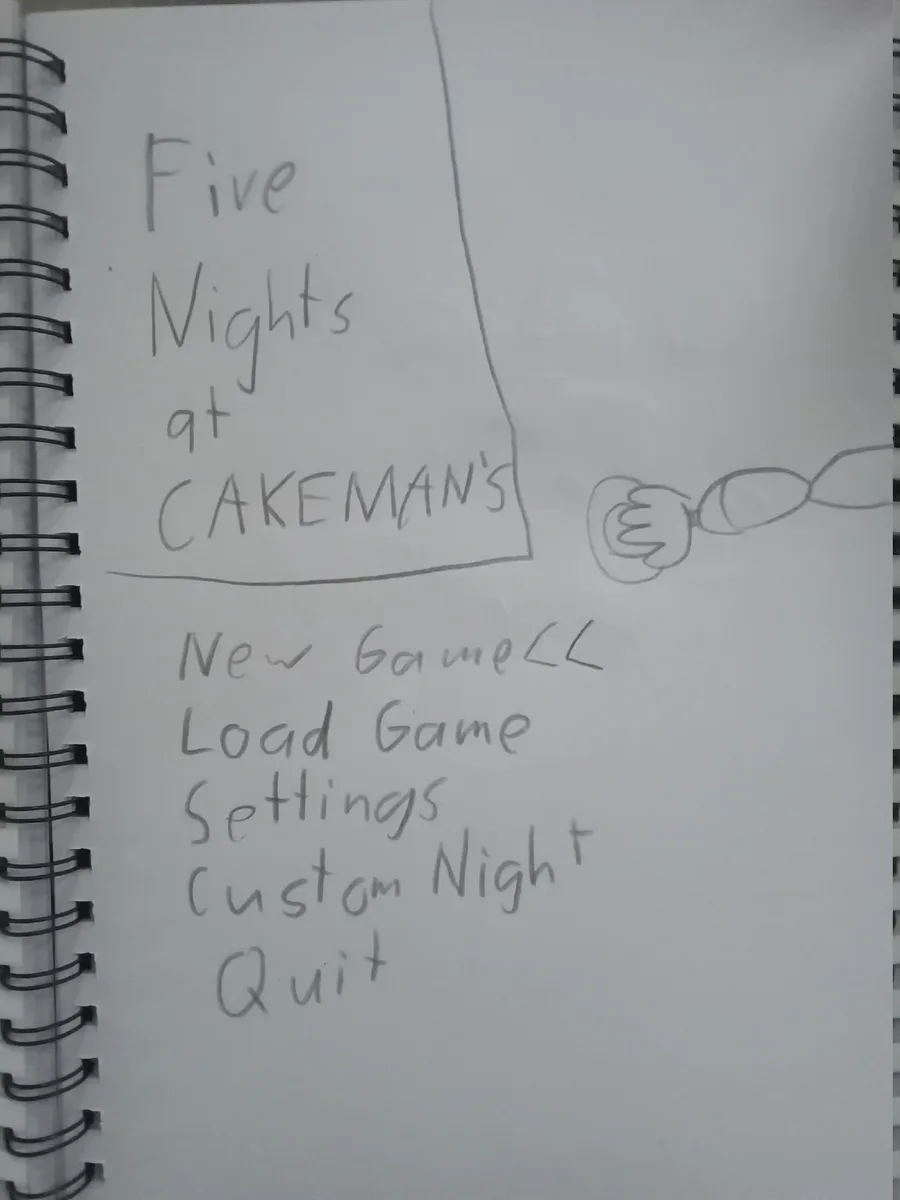 Five
Nights
at
CAKEMAN'S
New Game<<
Load Game
Settings
Custom Night
Quit